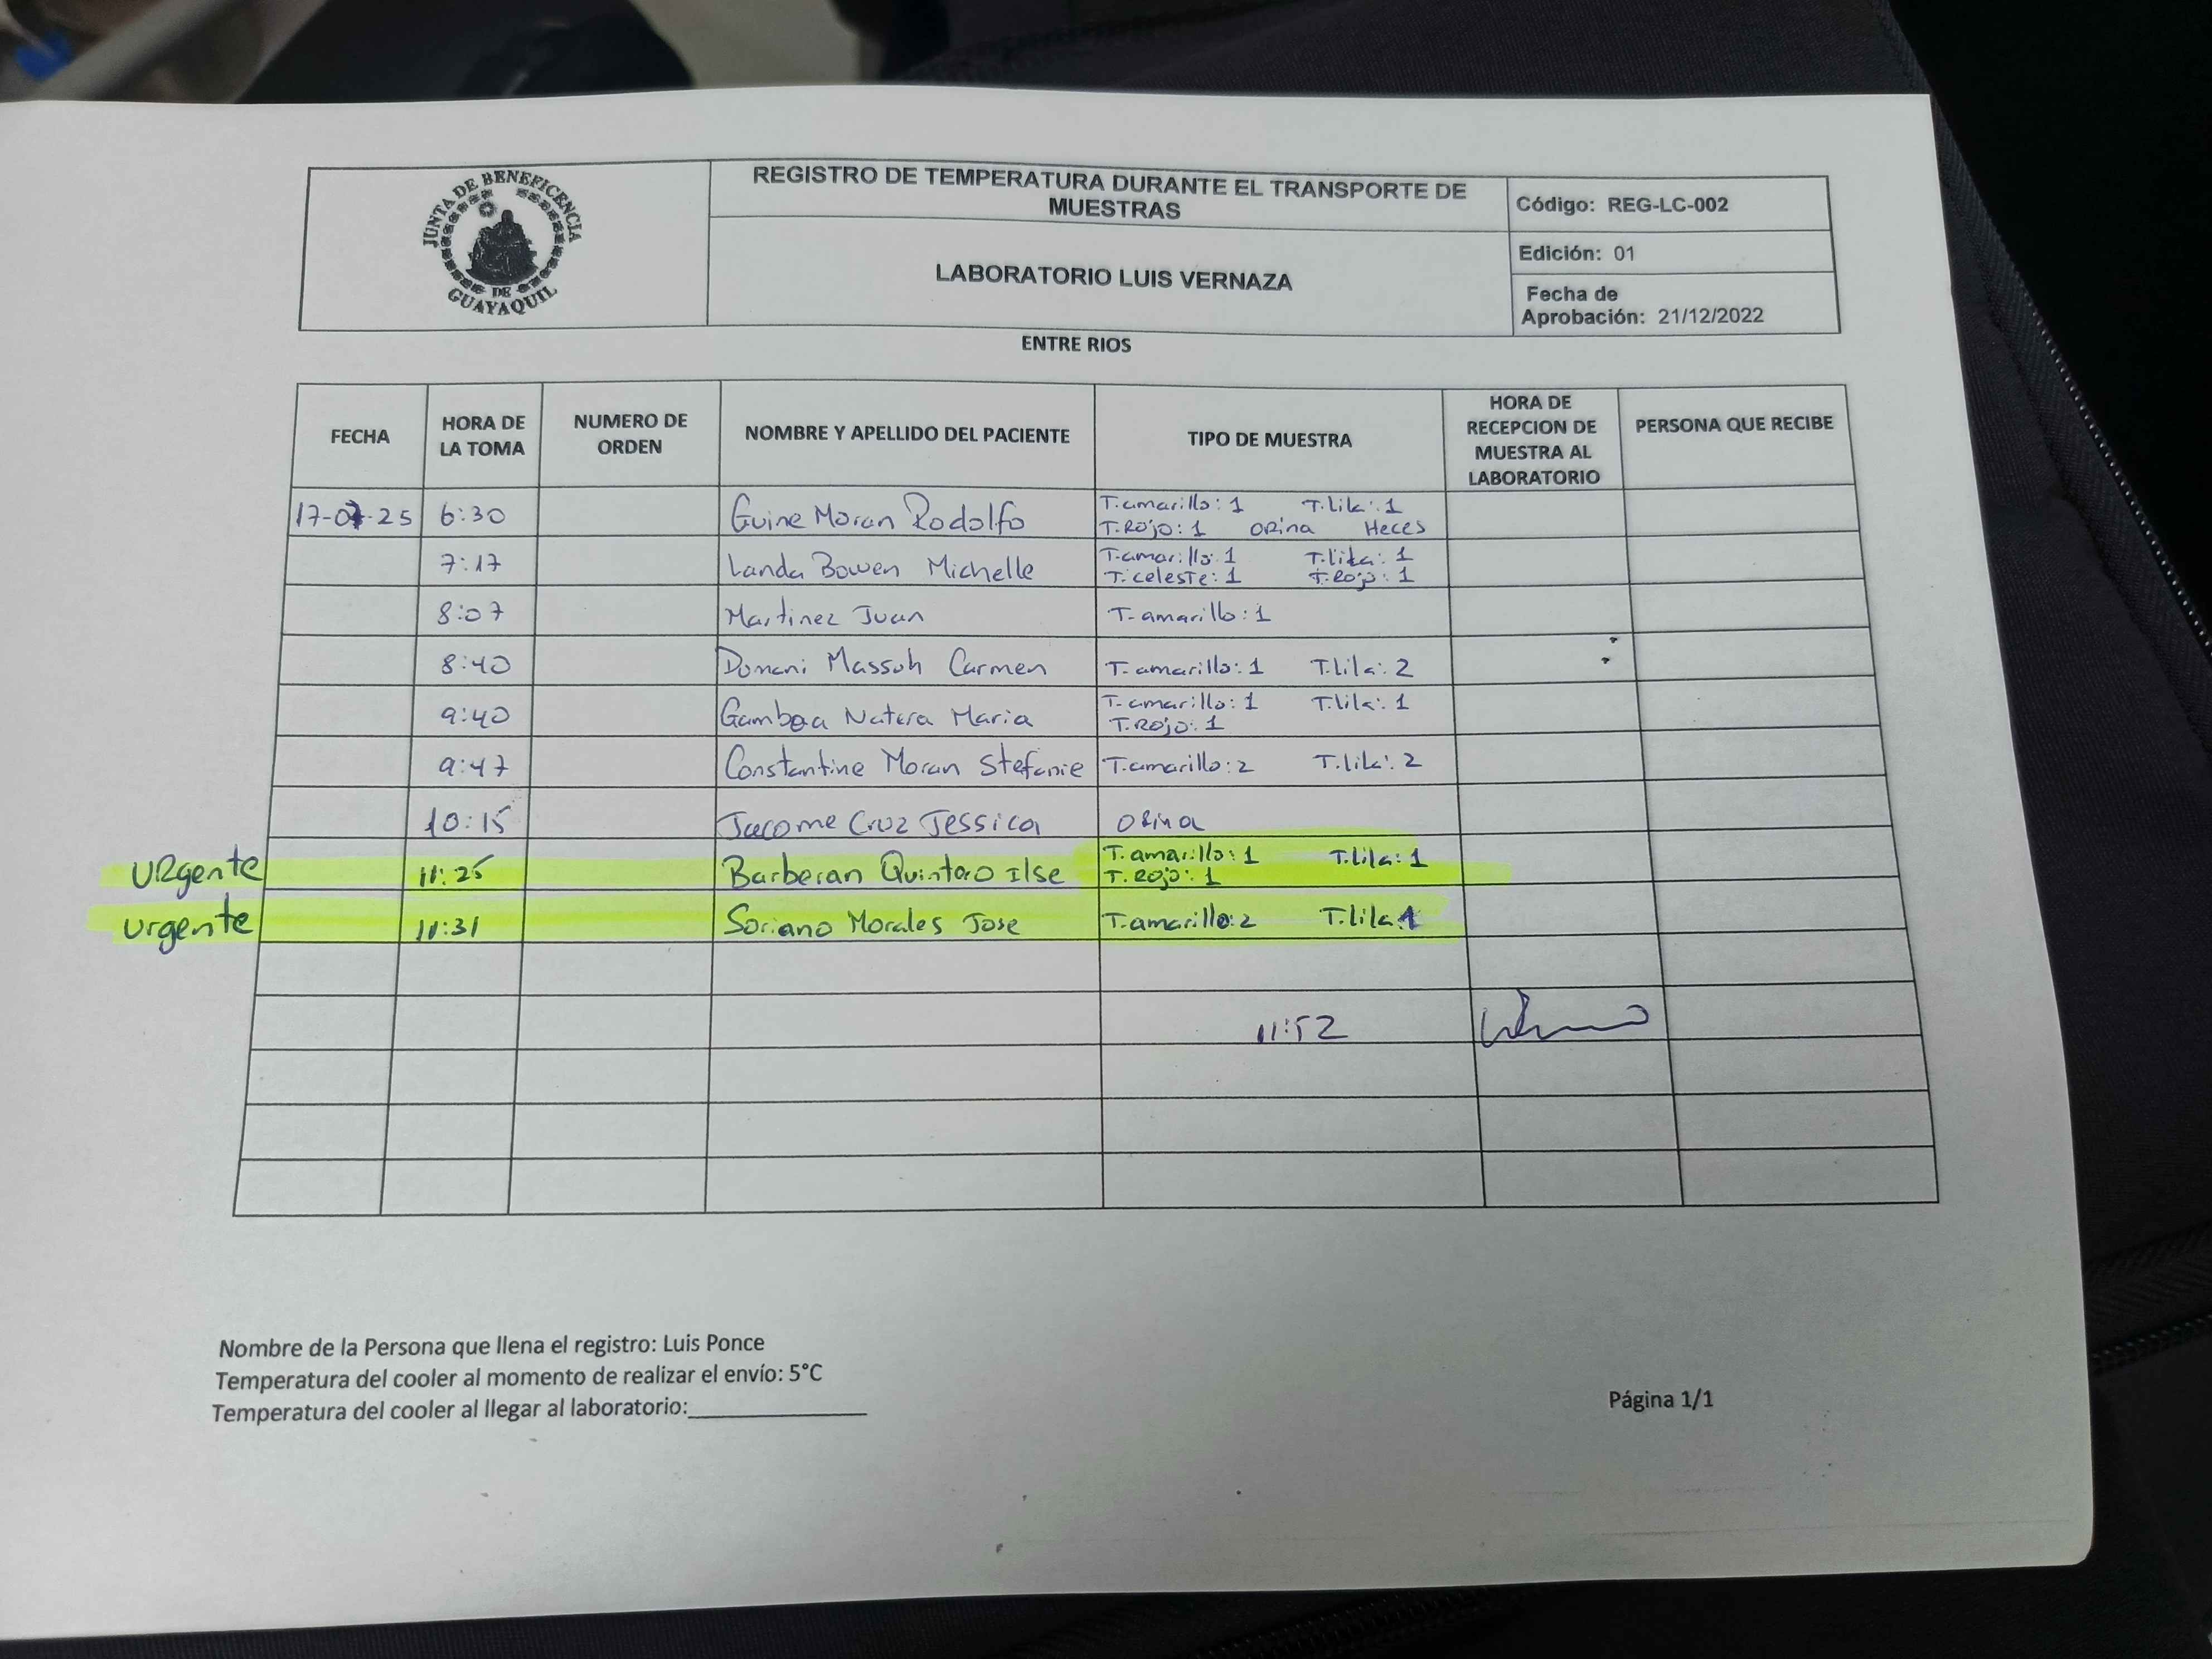 JUNTA DE BENEFICENCIA
DE
GUAYAQUIL
REGISTRO DE TEMPERATURA DURANTE EL TRANSPORTE DE
MUESTRAS
LABORATORIO LUIS VERNAZA
Código: REG-LC-002
Edición: 01
Fecha de
Aprobación: 21/12/2022
ENTRE RIOS
FECHA
HORA DE
LA TOMA
NUMERO DE
ORDEN
NOMBRE Y APELLIDO DEL PACIENTE
TIPO DE MUESTRA
HORA DE
RECEPCION DE
MUESTRA AL
LABORATORIO
PERSONA QUE RECIBE
17-07-25 6:30 Guine Moran Rodolfo
T.amarillo: 1 T.lila: 1
T.Rojo: 1 Orina Heces
7:17 Landa Bowen Michelle
T.amarillo: 1 T.lila: 1
T.celeste: 1 T.Rojo: 1
8:07 Martinez Juan T-amarillo: 1
8:40 Domani Massuh Carmen T-amarillo: 1 T.lila: 2
9:40 Gamboa Natera Maria
T-amarillo: 1 T.lila: 1
T.Rojo: 1
9:47 Constantine Moran Stefanie T.amarillo: 2 T.lila: 2
10:15 Jacome Cruz Jessica Orina
URgente 11:25 Barberan Quintero Ilse
T.amarillo: 1 T.lila: 1
T.Rojo: 1
urgente 11:31 Soriano Morales Jose T.amarillo: 2 T.lila 1
11:52
Nombre de la Persona que llena el registro: Luis Ponce
Temperatura del cooler al momento de realizar el envío: 5°C
Temperatura del cooler al llegar al laboratorio:
Página 1/1